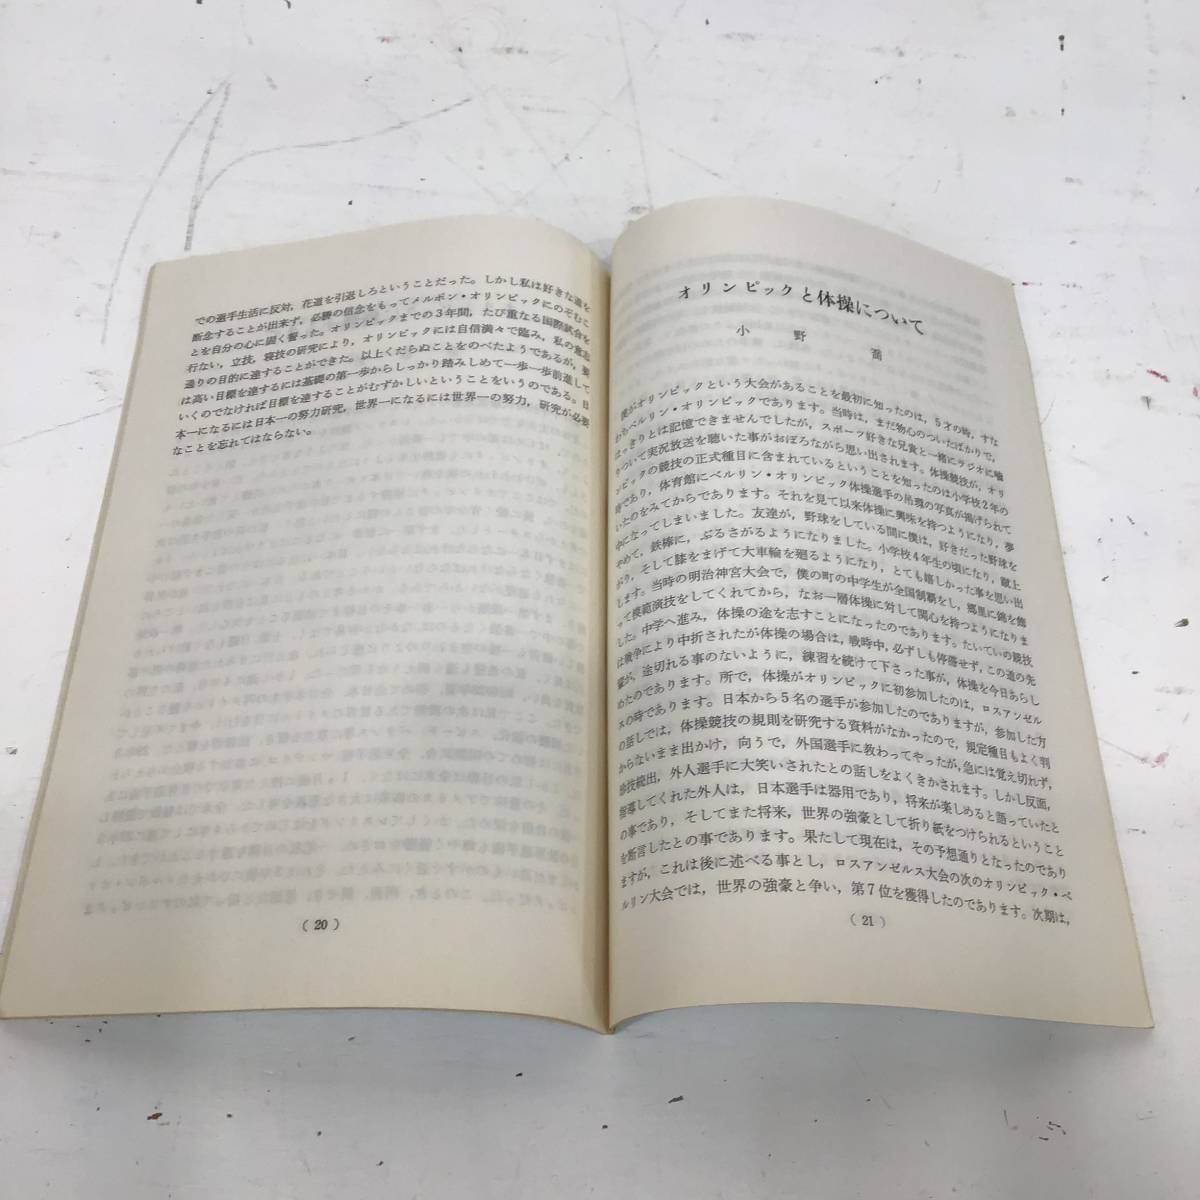 での選手生活に反対，花道を引退しろということだった。しかし私は好きな道を
断念することが出来ず，必勝の信念をもってメルボン・オリンピックにのぞむこ
とを自分の心に固く誓った。オリンピックまでの3年間，たび重なる国際試合を
行ない，立技，寝技の研究により，オリンピックには自信満々で臨み，私の意志
通りの目的に達することができた。以上くだらぬことをのべたようであるが，要
は高い目標を達するには基礎の第一歩からしっかり踏みしめて一歩一歩前進して
いくのでなければ目標を達することがむずかしいということをいうのである。日
本一になるには日本一の努力研究，世界一になるには世界一の努力，研究が必要
なことを忘れてはならない。
( 20 )
オリンピックと体操について
小野喬
僕がオリンピックという大会があることを最初に知ったのは，5才の時，すな
わちベルリン・オリンピックであります。当時は，まだ物心のついたばかりで，
はっきりとは記憶できませんでしたが，スポーツ好きな兄貴と一緒にラジオに嚙
りついて実況放送を聴いた事がおぼろながら思い出されます。体操競技が，オリ
ンピックの競技の正式種目に含まれているということを知ったのは小学校2年の
時であり，体育館にベルリン・オリンピック体操選手の吊環の写真が掲げられて
いたのをみてからであります。それを見て以来体操に興味を持つようになり，夢
中になってしまいました。友達が，野球をしている間に僕は，好きだった野球を
やめて，鉄棒に，ぶるさがるようになりました。小学校4年生の頃になり，蹴上
がり，そして膝をまげて大車輪を廻るようになり，とても嬉しかった事を思い出
します。当時の明治神宮大会で，僕の町の中学生が全国制覇をし，郷里に錦を飾
って模範演技をしてくれてから，なお一層体操に対して関心を持つようになりま
した。中学へ進み，体操の途を志すことになったのであります。たいていの競技
は戦争により中折されたが体操の場合は，戦時中，必ずしも停滞せず，この道の先
輩が，途切れる事のないように，練習を続けて下さった事が，体操を今日あらし
めたのであります。所で，体操がオリンピックに初参加したのは，ロスアンゼル
スの時であります。日本から5名の選手が参加したのでありますが，参加した方
の話しでは，体操競技の規則を研究する資料がなかったので，規定種目もよく判
からないまま出かけ，向うで，外国選手に教わってやったが，急には覚え切れず，
珍技続出，外人選手に大笑いされたとの話しをよくきかされます。しかし反面，
指導してくれた外人は，日本選手は器用であり，将来が楽しめると語っていたと
の事であり，そしてまた将来，世界の強豪として折り紙をつけられるということ
を断言したとの事であります。果たして現在は，その予想通りとなったのであり
ますが，これは後に述べる事とし，ロスアンゼルス大会の次のオリンピック・ベ
ルリン大会では，世界の強豪と争い，第7位を獲得したのであります。次期は，
( 21 )